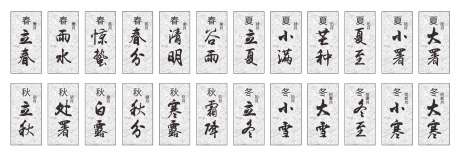 春 立春
春 雨水
春 惊蟄
春 春分
春 清明
春 谷雨
夏 立夏
夏 小满
夏 芒种
夏 夏至
夏 小署
夏 大署
秋 立秋
秋 处署
秋 白露
秋 秋分
秋 寒露
秋 霜降
冬 立冬
冬 小雪
冬 大雪
冬 冬至
冬 小寒
冬 大寒